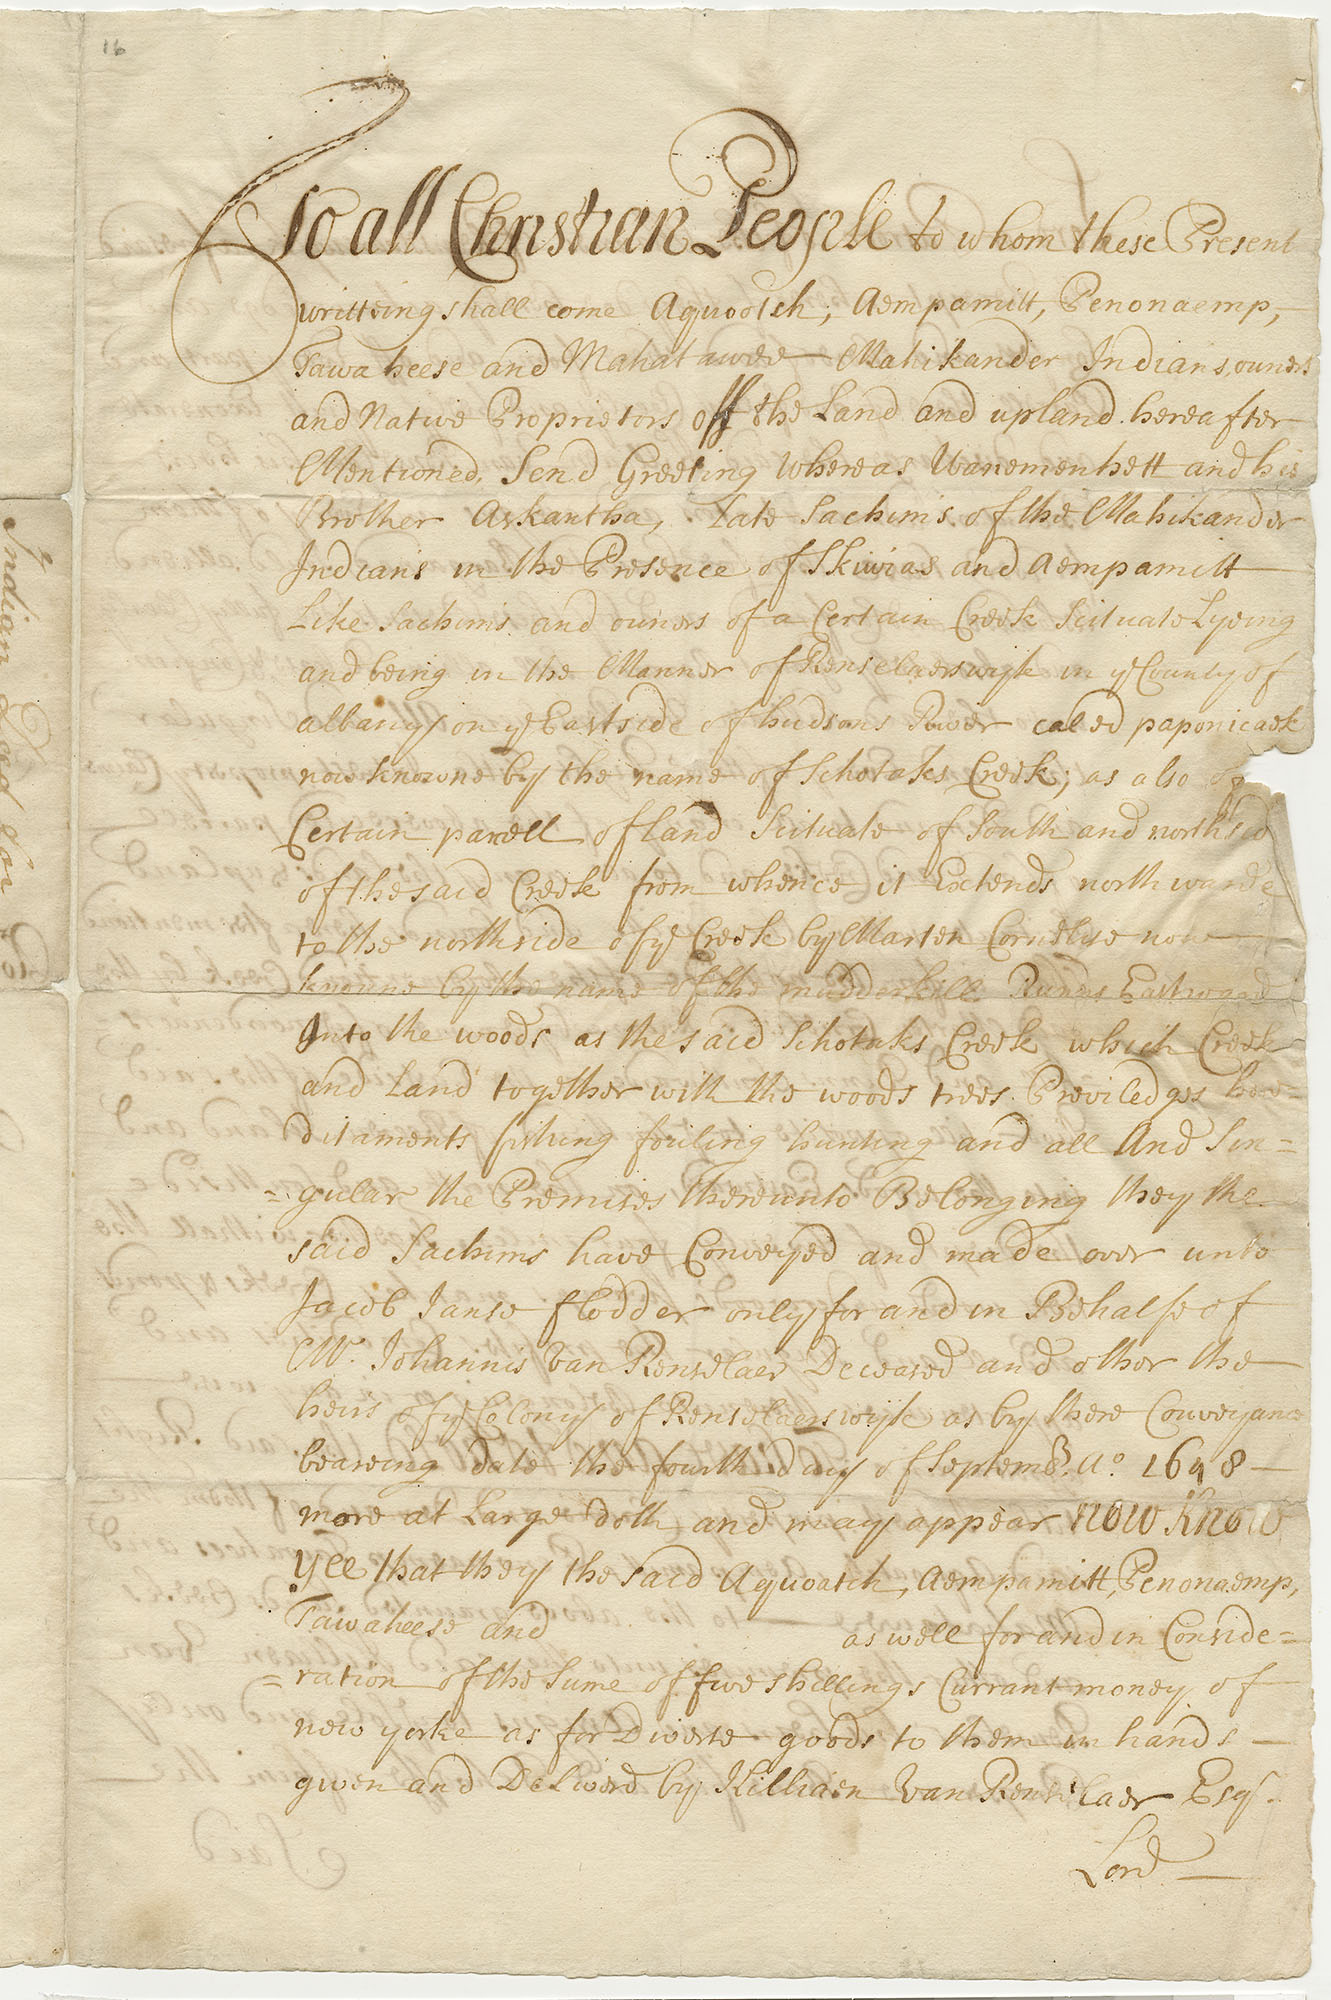 16
To all Christian People to whom these Present
writteing shall come Aquootch, Aempamitt, Penonaemp,
Tawaheese and Mahatawee Mahikander Indians, owners
and Native Proprietors off the Land and upland hereafter
Mentioned, Send Greeting Whereas Wanemenhett and his
Brother Askantha, Late Sachims of the Mahikander
Indians in the Presence of Skiwias and Aempamitt
Like Sachims and owners of a Certain Creek Scituate Lyeing
and being in the Manner of Renselaerswyk in ye County of
albany on ye East side of hudsons River caled paponicaek
now knowne by the name of Schotaks Creek; as also
Certain parcell of land Scituate of South and north
of the said Creek from whence it Extends northwarde
to the northside of ye Creek by Marten Cornelise now
knowne by the name of the mudderkill Runns Eastward
Into the woods as the said Schotaks Creek which Creek
and Land together with the woods trees Previledges here=
ditaments fishing fouling hunting and all And Sin=
=gular the Premises thereunto Belonging they the
said Sachims have Conveyed and made over unto
Jacob Janse flodder only for and in Behalfe of
Mr. Johannis Van Renselaer Deceased and other the
heirs of ye Colony of Renselaerswyk as by there Conveyance
beareing date the fourth day of Septembr. Ao. 1648
more at Large doth and may appear Now Know
yee that they the said Aquoatch, Aempamitt, Penonaemp,
Tawaheese and as well for and in Conside=
=ration of the Sume of five shillings Currant money of
new yorke as for Diverse goods to them in hands
given and Deliverd by Killiaen Van Renselaer Esqr.
Lord
Indian Deed for